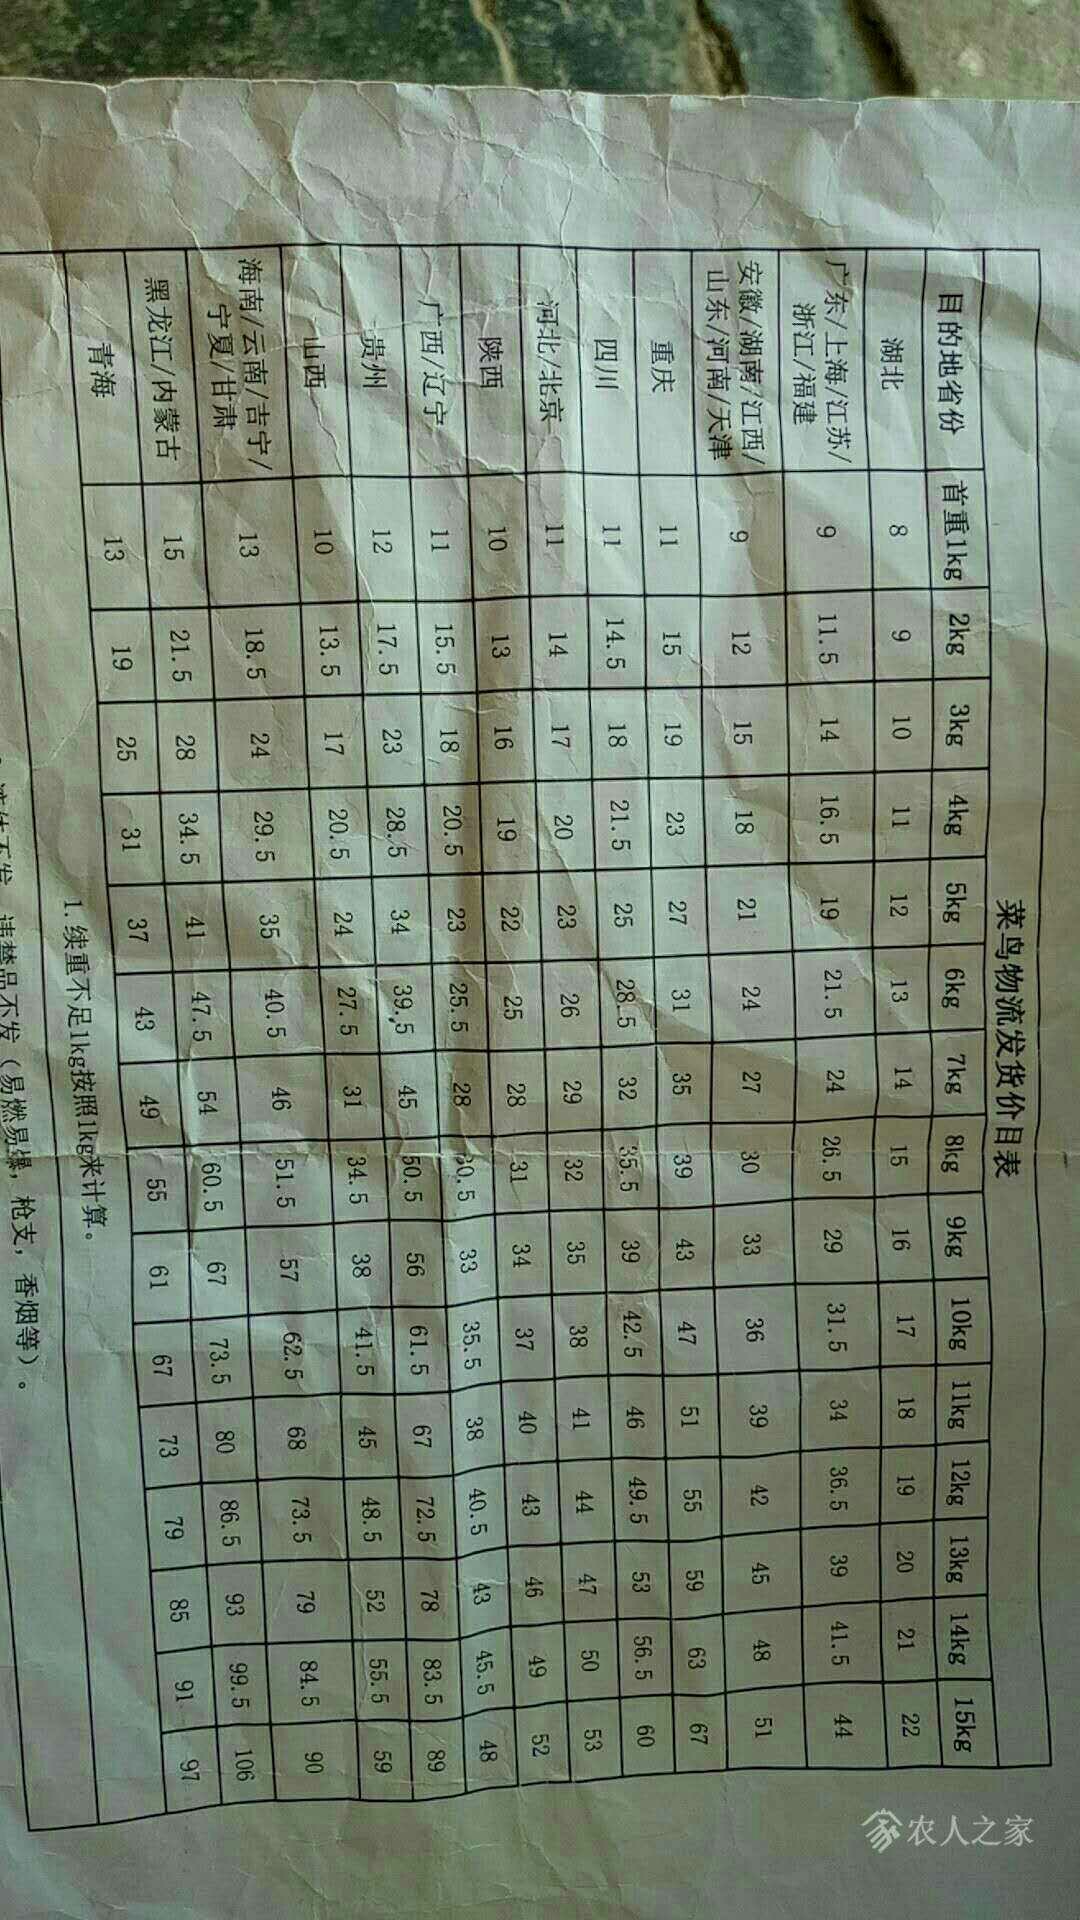 菜鸟物流发货价目表
目的地省份 首重1kg 2kg 3kg 4kg 5kg 6kg 7kg 8kg 9kg 10kg 11kg 12kg 13kg 14kg 15kg
湖北 8 9 10 11 12 13 14 15 16 17 18 19 20 21 22
广东/上海/江苏/
浙江/福建 9 11.5 14 16.5 19 21.5 24 26.5 29 31.5 34 36.5 39 41.5 44
安徽/湖南/江西/
山东/河南/天津 9 12 15 18 21 24 27 30 33 36 39 42 45 48 51
重庆 11 15 19 23 27 31 35 39 43 47 51 55 59 63 67
四川 11 14.5 18 21.5 25 28.5 32 35.5 39 42.5 46 49.5 53 56.5 60
河北/北京 11 14 17 20 23 26 29 32 35 38 41 44 47 50 53
陕西 10 13 16 19 22 25 28 31 34 37 40 43 46 49 52
广西/辽宁 11 15.5 18 20.5 23 25.5 28 30.5 33 35.5 38 40.5 43 45.5 48
贵州 12 17.5 23 28.5 34 39.5 45 50.5 56 61.5 67 72.5 78 83.5 89
山西 10 13.5 17 20.5 24 27.5 31 34.5 38 41.5 45 48.5 52 55.5 59
海南/云南/吉宁/
宁夏/甘肃 13 18.5 24 29.5 35 40.5 46 51.5 57 62.5 68 73.5 79 84.5 90
黑龙江/内蒙古 15 21.5 28 34.5 41 47.5 54 60.5 67 73.5 80 86.5 93 99.5 106
青海 13 19 25 31 37 43 49 55 61 67 73 79 85 91 97
1.续重不足1kg按照1kg来计算。
液体不发，违禁品不发（易燃易爆，枪支，香烟等）。
农人之家